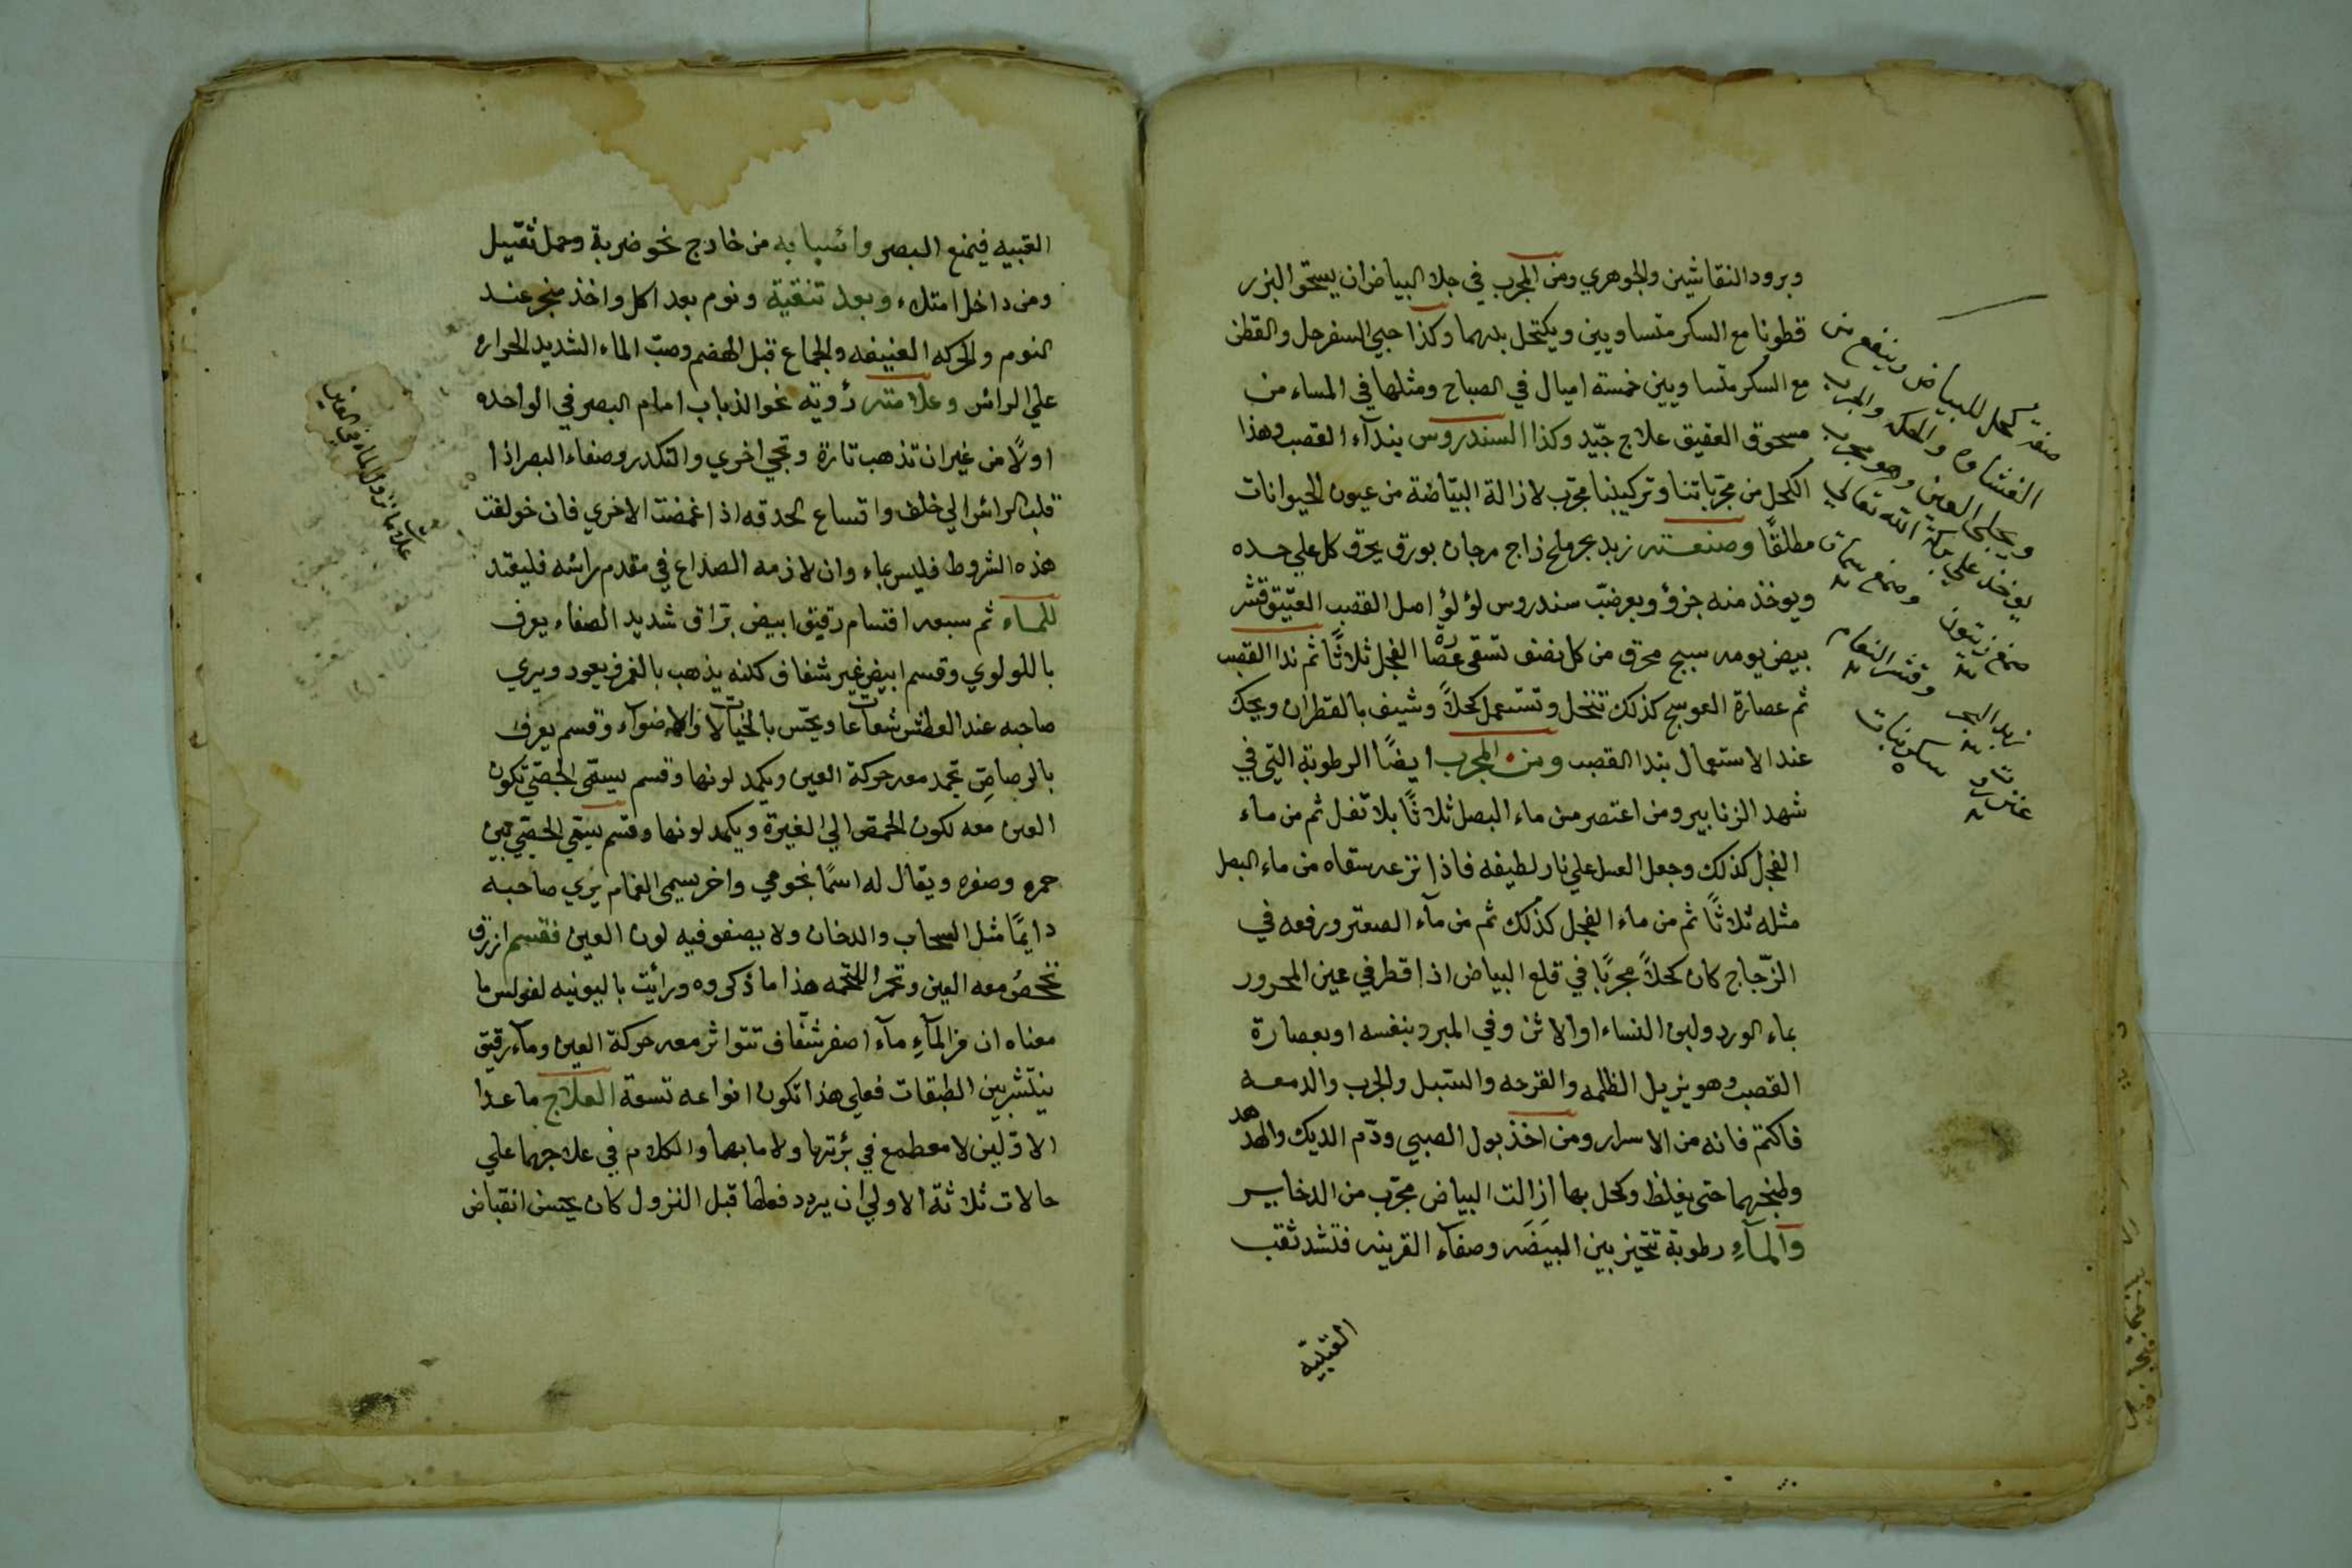 وبرود النقاشين والجوهري ومن المجرب في جلا البياض ان يسحق البزر
قطونا مع السكر متساويين ويكتحل بهما وكذا حبي السفرجل والقطن
مع السكر متساويين خمسة اميال في الصباح ومثلها في المساء من
مسحوق العقيق علاج جيّد وكذا السندروس بندآء القصب وهذا
الكحل من مجرّباتنا وتركيبنا مجرّب لازالة البيّاضة من عيون الحيوانات
مطلقًا وصنعته زبد بحر ملح زاج مرجان بورق يحرق كل علي حده
ويوخذ منه جزؤ وبعر ضبّ سندروس لؤلؤ اصل القصب العتيق قشر
بيض يومه سبج محرق من كل نصف تسقي عصارة الفجل ثلاثًا ثم ندا القصب
ثم عصارة العوسج كذلك تنخل وتستعمل كحلاً وشيف بالقطران ويحك
عند الاستعمال بندا القصب ومن المجرب ايضًا الرطوبة التي في
شهد الزنابير ومن اعتصر من ماء البصل ثلاثًا بلا تفل ثم من ماء
الفجل كذلك وجعل العسل علي نار لطيفه فاذا نزعه سقاه من ماء البصل
مثله ثلاثًا ثم من ماء الفجل كذلك ثم من مآء الصعتر ورفعه في
الزّجاج كان كحلاً مجربًا في قلع البياض اذا قطر في عين المحرور
بماء الورد ولبن النساء او الاتن وفي المبرد بنفسه او بعصارة
القصب وهو يزيل الظلمه والقرحه والسبل والجرب والدمعه
فاكتم فانه من الاسرار ومن اخذ بول الصبي ودّم الديك والهدهد
وطبخهما حتي يغلظ وكحل بها ازالت البياض مجرّب من الدخاير
والمآءِ رطوبة تتحيز بين البيضَه وصفآء القرينه فتشد ثقب
القبيّه
صفة كحل للبياض وينفع من
الغشاوه والحكه والجرب
ويجلي العين وهو مجرب
يوخذ علي بركة الله تعالي
صمغ زيتون وصمغ سماق
زبد البحر وقشر النعام
القبيه فيمنع البصر واسبابه من خارج نحو ضربة وحمل ثقيل
ومن داخل امتلاء وبعد تنقية ونوم بعد اكل واخذ مبخر عند
النوم والحركه العنيفه والجماع قبل الهضم وصبّ الماء الشديد الحراره
علي الرائس وعلامته رؤية نحو الذباب امام البصر في الواحده
اولاً من غير ان تذهب تارة وتجي اخري والتكدر وصفاء البصر اذا
قلب الرائس الي خلف واتساع الحدقه اذا غمضت الاخري فان خولفت
هذه الشروط فليس بماء وان لازمه الصداع في مقدم رائسه فليقتد
للماء ثم سبعه اقتسام رقيق ابيض برّاق شديد الصفاء يعرف
باللولوي وقسم ابيض غير شفاف كدنه يذهب بالغمز فيعود ويري
صاحبه عند العطش شعاعا ويحّس بالخيالات والاضوآء وقسم يعرف
بالرصاصيّ تجمد معه حركة العين ويكمد لونها وقسم يسمي الجصّي تكون
العين معه بلون الحمص الي الغبرة ويكمد لونها وقسم يسمي الحصّي بين
حمره وصفره ويقال له اسمًا نجومي واخر يسمي الغمام يري صاحبه
دايمًا مثل السحاب والدخان ولا يصفو فيه لون العين فقسم ازرق
تخصُ معه العين وتحمر اللحمه هذا ما ذكروه ورأيت باليونيه لفولس ما
معناه ان من المآءِ مآء اصفر شفّاف تتواثر معه حركة العين ومآء رقيق
ينتشر بين الطبقات فعلي هذا تكون انواعه تسعة العلاج ما عدا
الاوّلين لا مطمع في برئتها ولا ما بهما والكلام في علاجهما علي
حالات ثلاثة الاولي ان يردد فعلها قبل النزول كان يحسن انقباض
علامات نزول الماء في العين